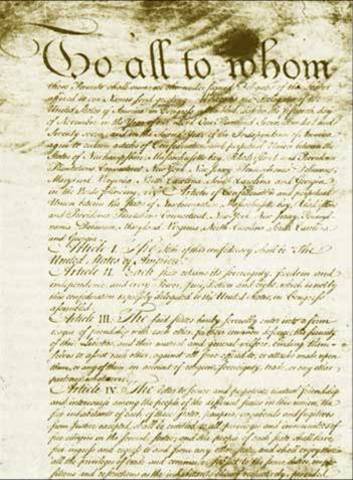 To all to whom
these Presents shall come we the under signed Delegates of the States
affixed to our Names send greeting. Whereas the Delegates of the
United States of America in Congress assembled did on the fifteenth day
of November in the Year of our Lord One Thousand Seven Hundred and
Seventy seven, and in the Second Year of the Independence of America
agree to certain articles of Confederation and perpetual Union between the
States of Newhampshire, Massachusetts-bay, Rhodeisland and Providence
Plantations, Connecticut, New York, New Jersey, Pennsylvania, Delaware,
Maryland, Virginia, North Carolina, South Carolina and Georgia
in the Words following, viz. Articles of Confederation and perpetual
Union between the States of Newhampshire, Massachusetts-bay, Rhodeisland
and Providence Plantations, Connecticut, New York, New Jersey, Pennsyl-
vania, Delaware, Maryland, Virginia, North Carolina, South Carolina
and Georgia.
Article I. The Stile of this confederacy shall be "The
United States of America."
Article II. Each state retains its sovereignty, freedom and
independence, and every Power, Jurisdiction and right, which is not by
this confederation expressly delegated to the United States, in Congress
assembled.
Article III. The said states hereby severally enter into a firm
league of friendship with each other, for their common defence, the security
of their Liberties, and their mutual and general welfare, binding them-
selves to assist each other, against all force offered to, or attacks made upon
them, or any of them, on account of religion, sovereignty, trade, or any other
pretence whatever.
Article IV. The better to secure and perpetuate mutual friendship
and intercourse among the people of the different states in this union, the
free inhabitants of each of these states, paupers, vagabonds and fugitives
from Justice excepted, shall be entitled to all privileges and immunities of
free citizens in the several states; and the people of each state shall have
free ingress and regress to and from any other state, and shall enjoy therein
all the privileges of trade and commerce, subject to the same duties, impo-
sitions and restrictions as the inhabitants thereof respectively, provided